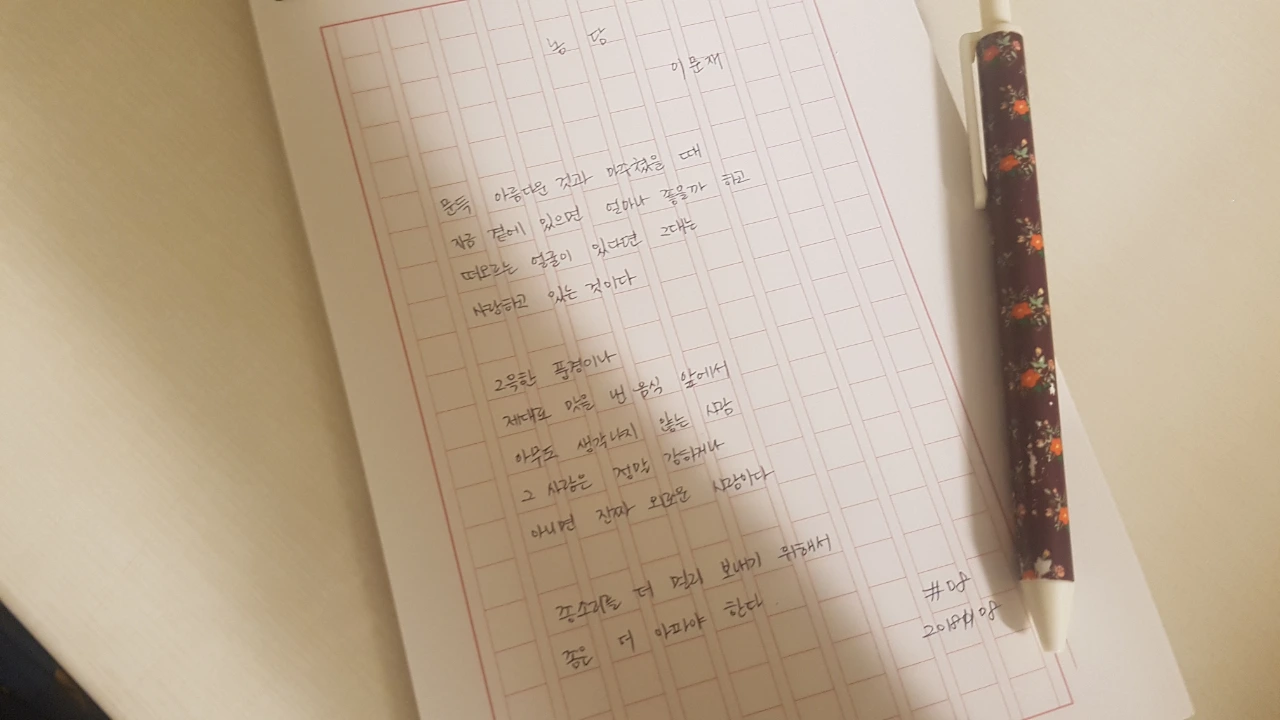 농담
이문재
문득 아름다운 것과 마주쳤을 때
지금 곁에 있으면 얼마나 좋을까 하고
떠오르는 얼굴이 있다면 그대는
사랑하고 있는 것이다
그윽한 풍경이나
제대로 맛을 낸 음식 앞에서
아무도 생각나지 않는 사람
그 사람은 정말 강하거나
아니면 진짜 외로운 사람이다
종소리를 더 멀리 보내기 위해서
종은 더 아파야 한다
#08
20181108